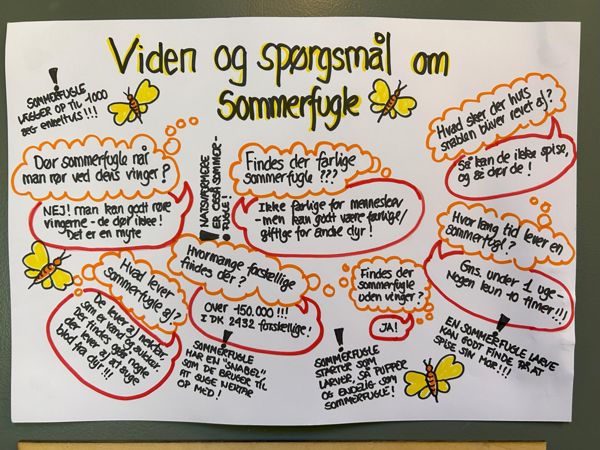 Viden og spørgsmål om
Sommerfugle
!
SOMMERFUGLE
LÆGGER OP TIL 1000
ÆG ENKELTVIS!!!
Dør sommerfugle når
man rør ved deis vinger?
NEJ! man kan godt røre
vingerne - de dør ikke!
Det er en myte
! NATSVÆRMERE
ER OGSÅ SOMMER-
FUGLE!
Findes der farlige
sommerfugle ???
Ikke farlige for mennesker
- men kan godt være farlige/
giftige for andre dyr!
Hvad sker der hvis
snablen bliver revet af?
Så kan de ikke spise,
og så dør de!
Hvor lang tid lever en
sommerfugl?
Gns. under 1 uge -
Nogen kun 10 timer!!!
Hvad lever
sommerfugle af?
De lever af nektar
som er vand og sukker.
Der findes også nogle
der lever af at suge
blod fra dyr!!!
Hvormange forskellige
findes der?
Over 150.000!!!
I DK 2432 forskellige!
Findes der
sommerfugle
uden vinger?
JA!
!
SOMMERFUGLE
HAR EN "SNABEL"
SOM DE BRUGER TIL
AT SUGE NEKTAR
OP MED!
!
SOMMERFUGLE
STARTER SOM
LARVER, SÅ PUPPER
OG ENDELIG SOM
SOMMERFUGLE!
!
EN SOMMERFUGLE LARVE
KAN GODT FINDE PÅ AT
SPISE SIN MOR!!!